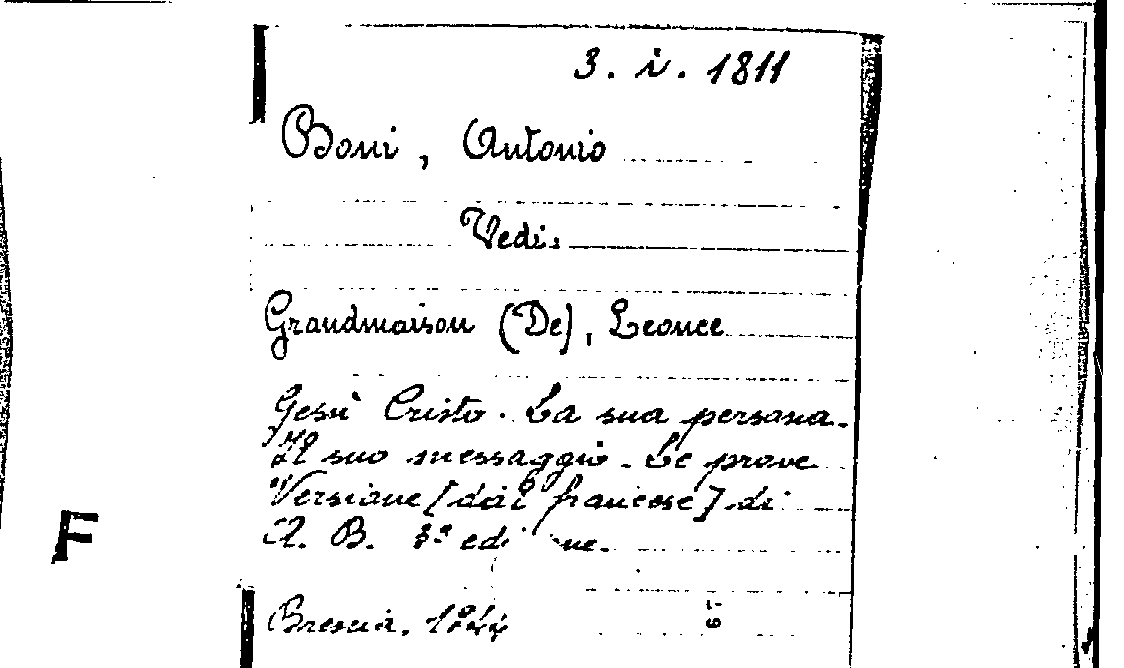 3. i. 1811
Boni, Antonio
Vedi:
Grandmaison (De), Leonce
Gesù Cristo. La sua persona.
Il suo messaggio. Le prove
Versione [dal francese] di
A. B. 3ª edi ne.
Brescia, 1944
F